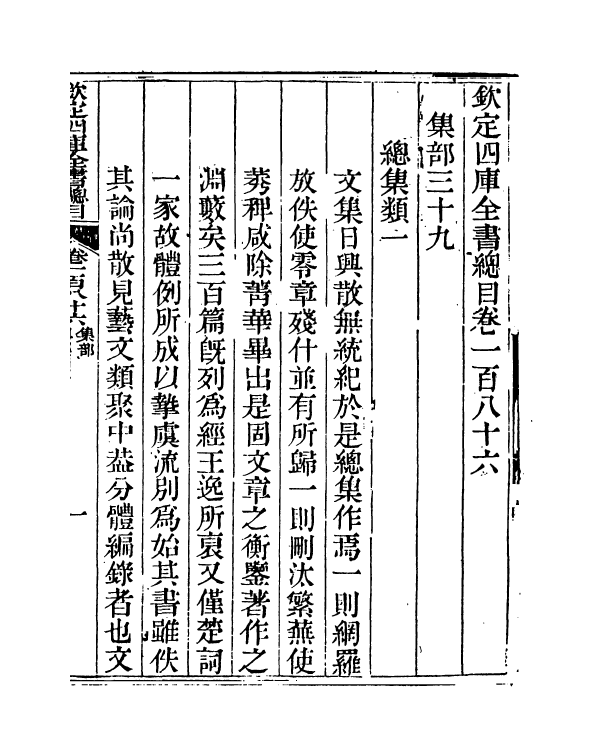 欽定四庫全書總目卷一百八十六
集部三十九
總集類一
文集日興散無統紀於是總集作焉一則網羅
放佚使零章殘什並有所歸一則刪汰繁蕪使
莠稗咸除菁華畢出是固文章之衡鑒著作之
淵藪矣三百篇旣列爲經王逸所裒又僅楚詞
一家故體例所成以摯虞流別爲始其書雖佚
其論尚散見藝文類聚中葢分體編錄者也文
欽定四庫全書總目
卷一百八十六
集部
一